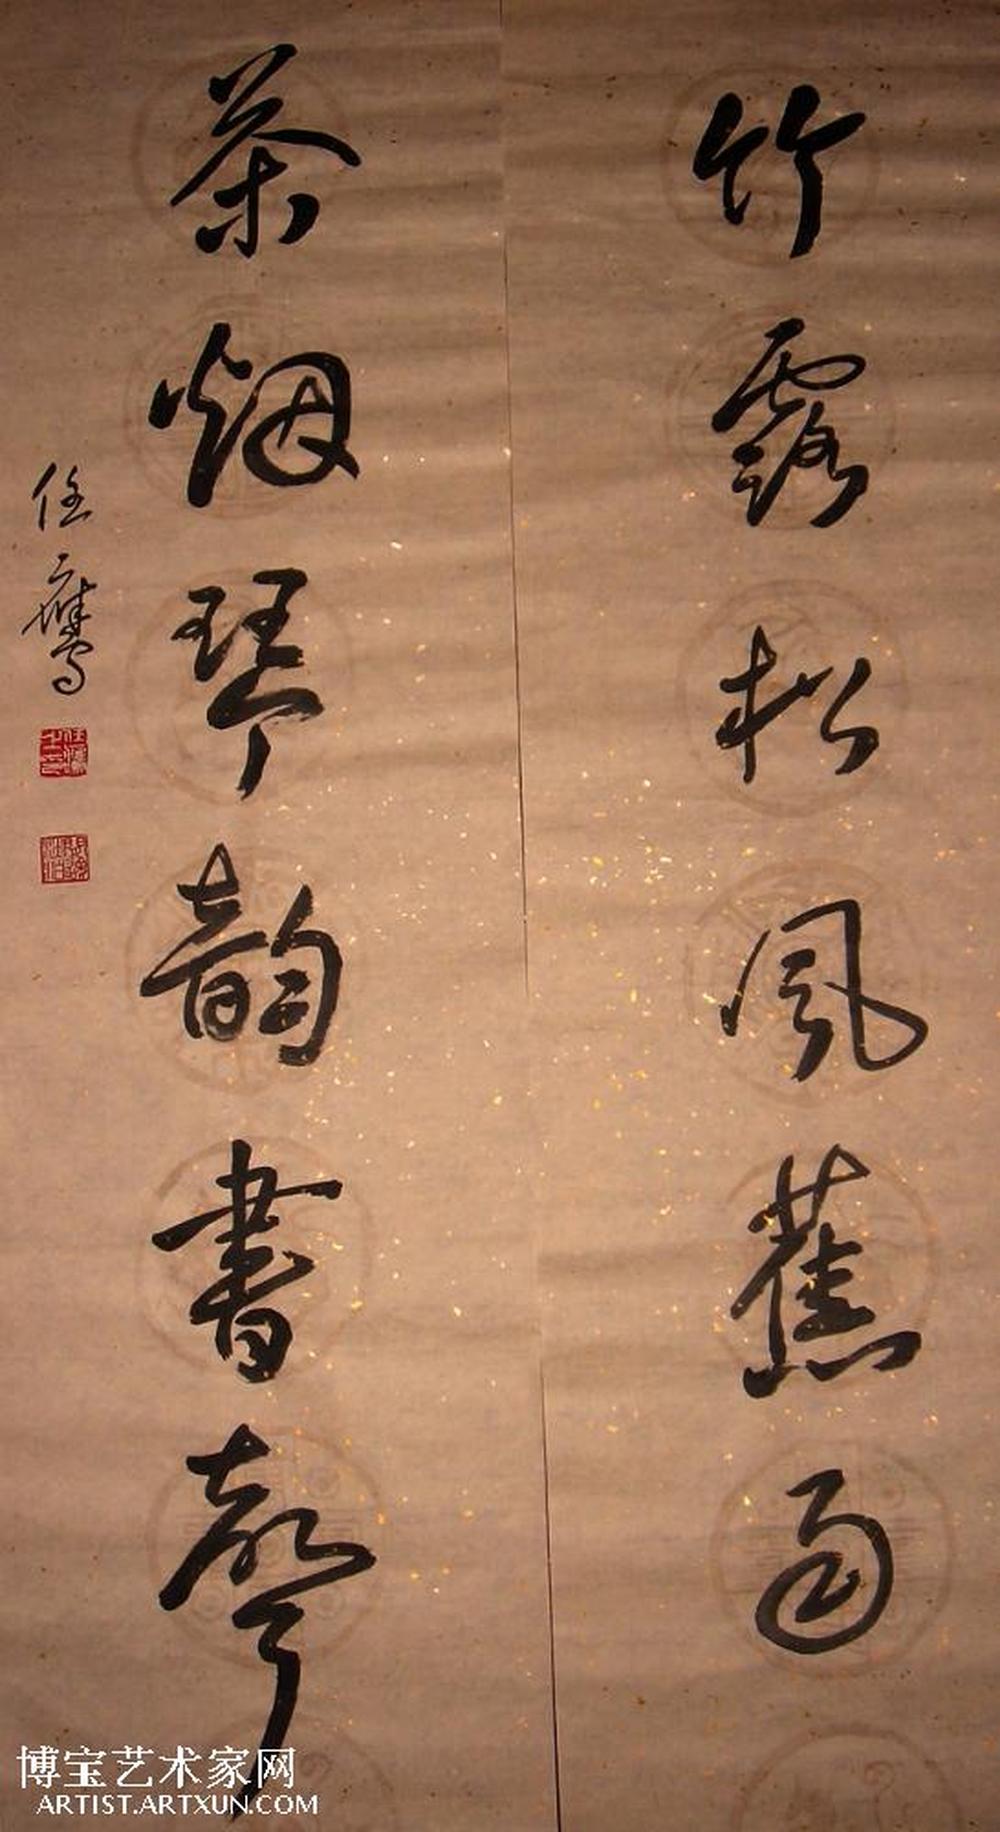 竹露松風蕉雨
茶烟琴韵書聲
任鹰
博宝艺术家网
ARTIST.ARTXUN.COM